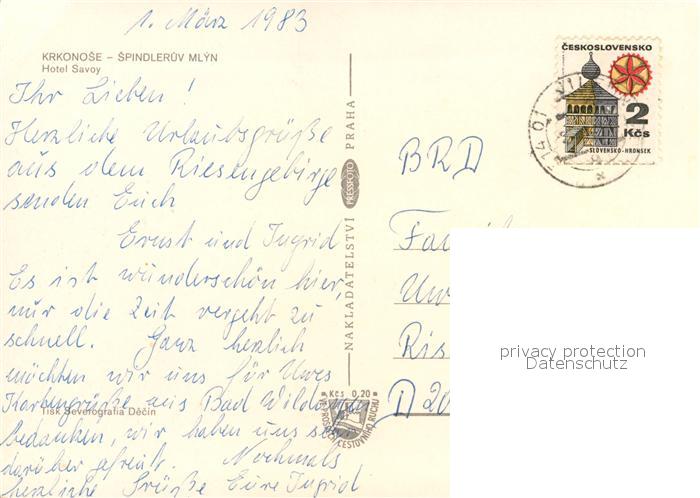 1. März 1983
KRKONOŠE – ŠPINDLERŮV MLÝN
Hotel Savoy
Ihr Lieben!
Herzliche Urlaubsgrüße
aus dem Riesengebirge
senden Euch
Ernst und Ingrid
Es ist wunderschön hier,
nur die Zeit vergeht zu
schnell. Ganz herzlich
möchten wir uns für Uwes
Kartengrüße aus Bad Wildungen
bedanken, wir haben uns sehr
darüber gefreut. Nochmals
herzliche Grüße Eure Ingrid
Tisk Severografia Děčín
NAKLADATELSTVÍ PRESSFOTO PRAHA
Kčs 0,20
CESTOVNÍHO RUCHU
ČESKOSLOVENSKO
2
Kčs
SLOVENSKO-HRONSEK
BRD
Uw
Ris
D 20
privacy protection
Datenschutz